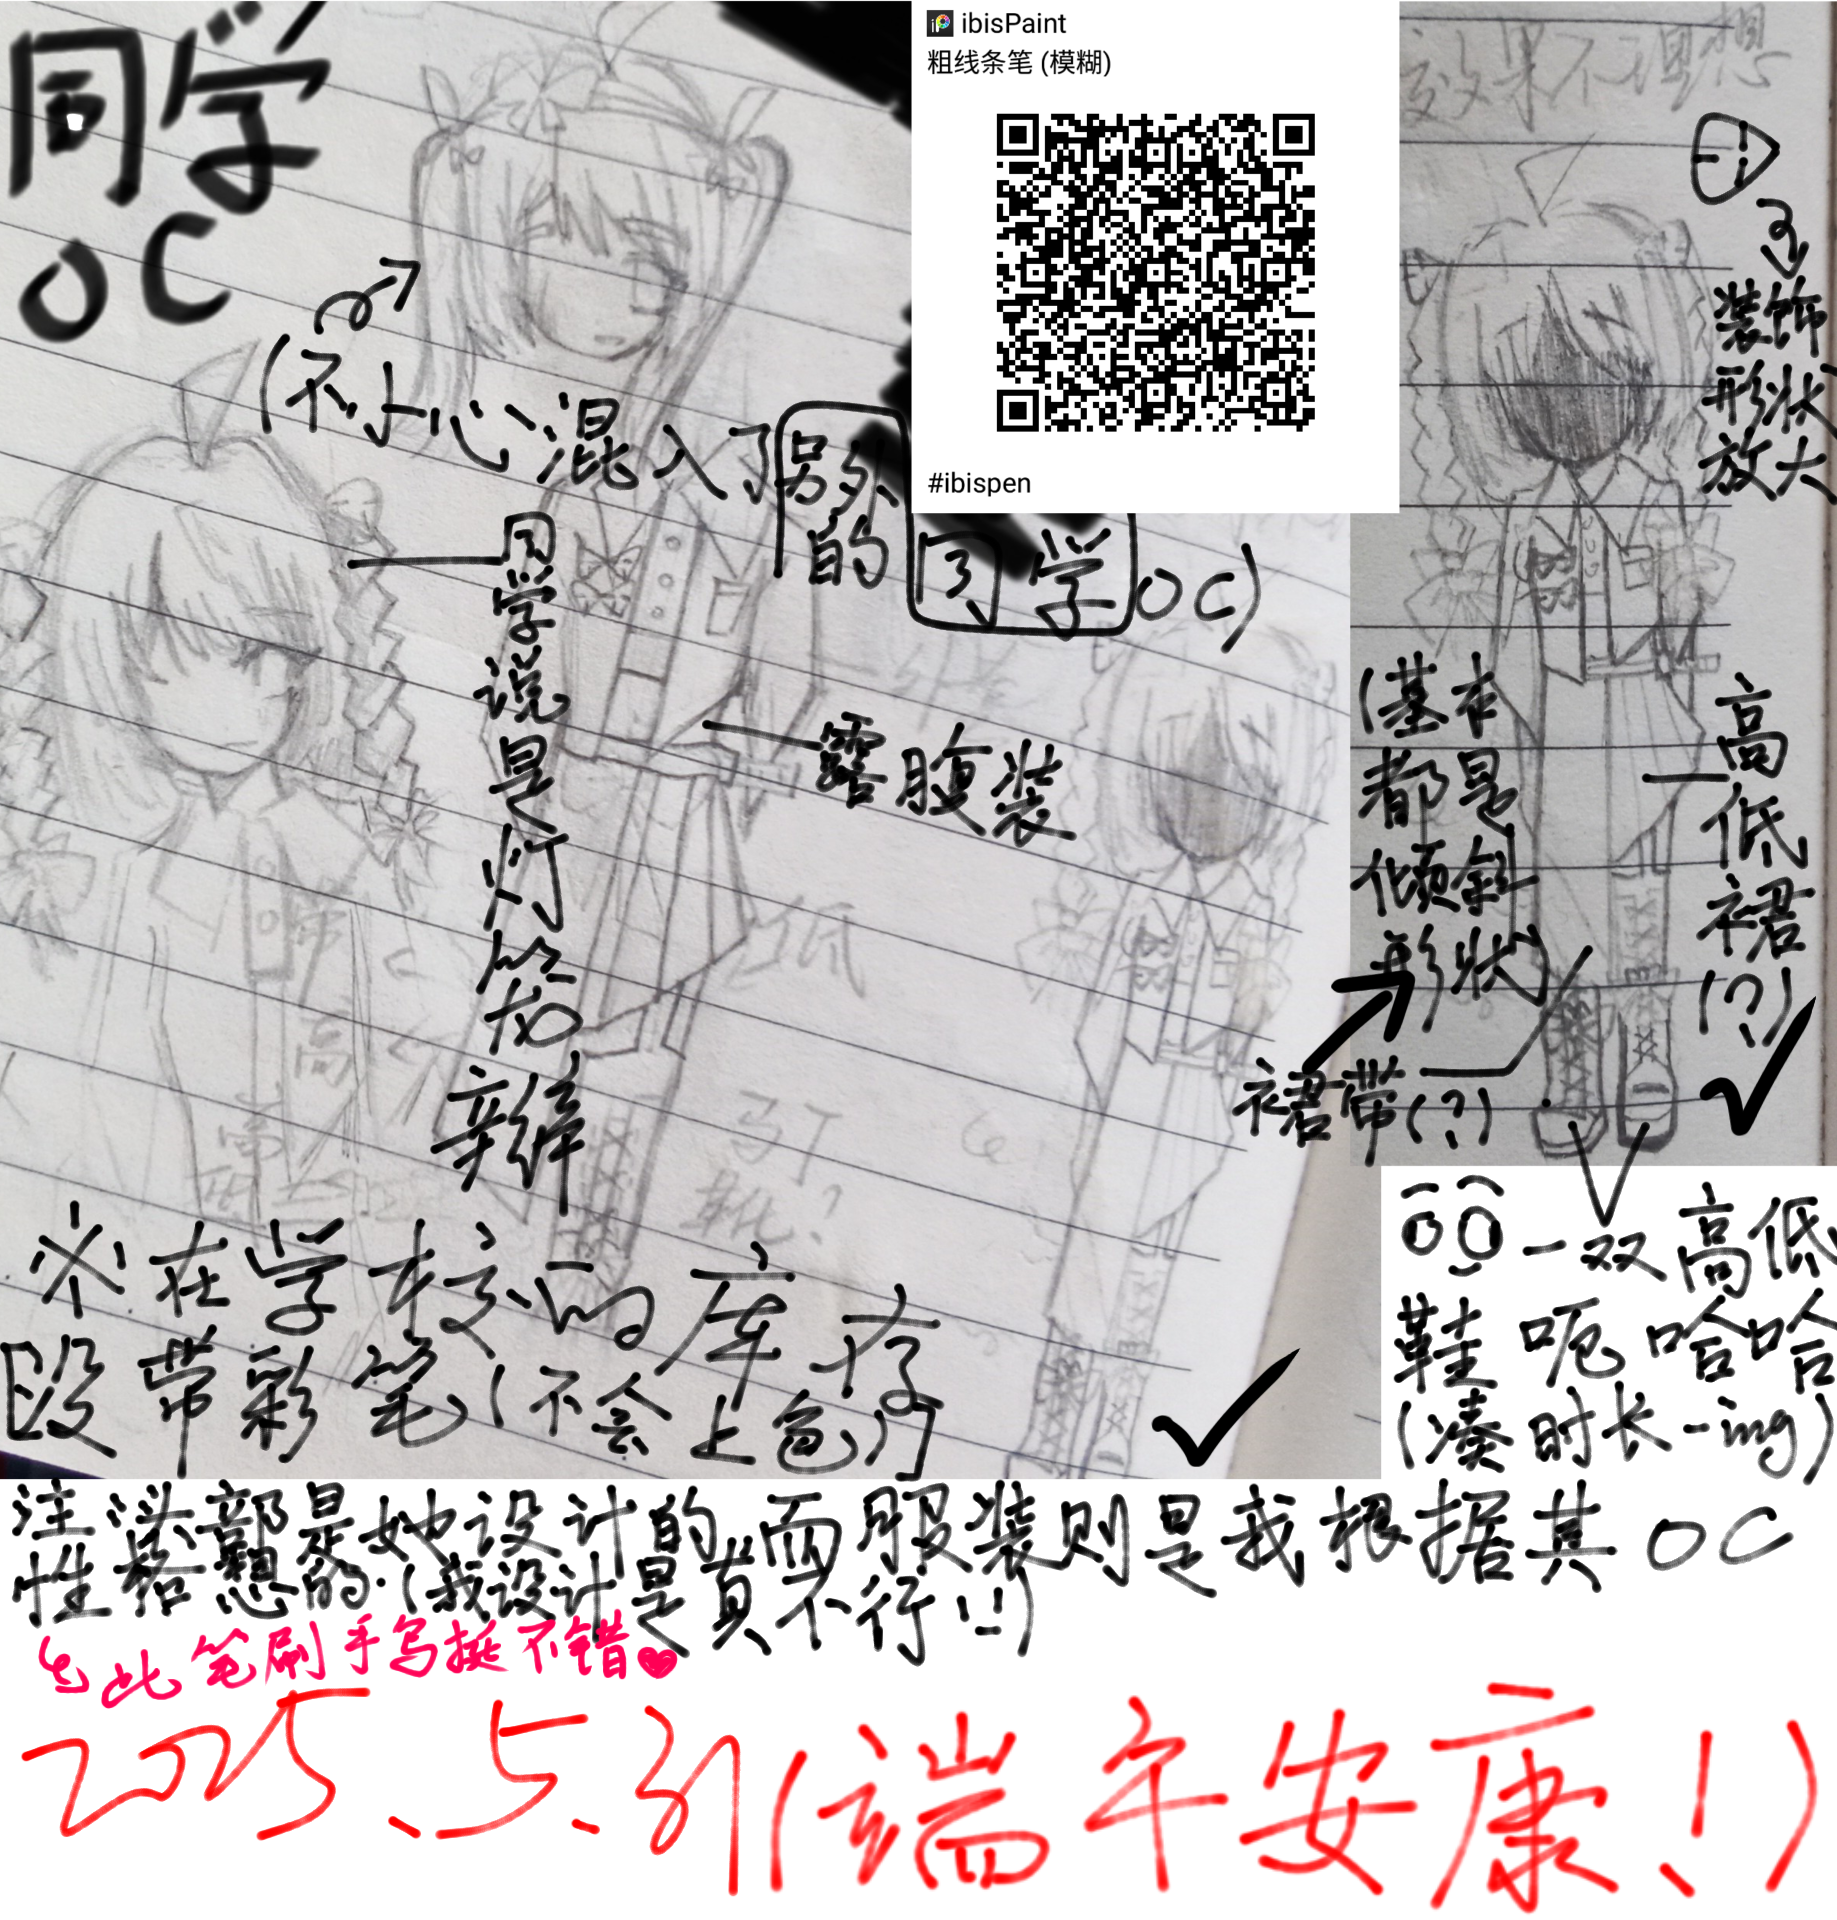 同学
OC
ibisPaint
粗线条笔 (模糊)
#ibispen
效果不理想
装饰
形状
放大
(不小心混入了另外
的同学OC)
同学说是灯笼辫
露腹装
低
高
(基本
都是
倾斜
形状)
高低裙(?)
裙带(?)
马丁
靴?
一双高低
鞋 呃 哈哈
(凑时长-ing)
※在学校
段带彩笔(不会上色)
注: 是她设计的,而服装则是我根据其OC
性格 想的.(我设计是真不行!!)
此笔刷手写挺不错
2025.5.31(端午安康!)